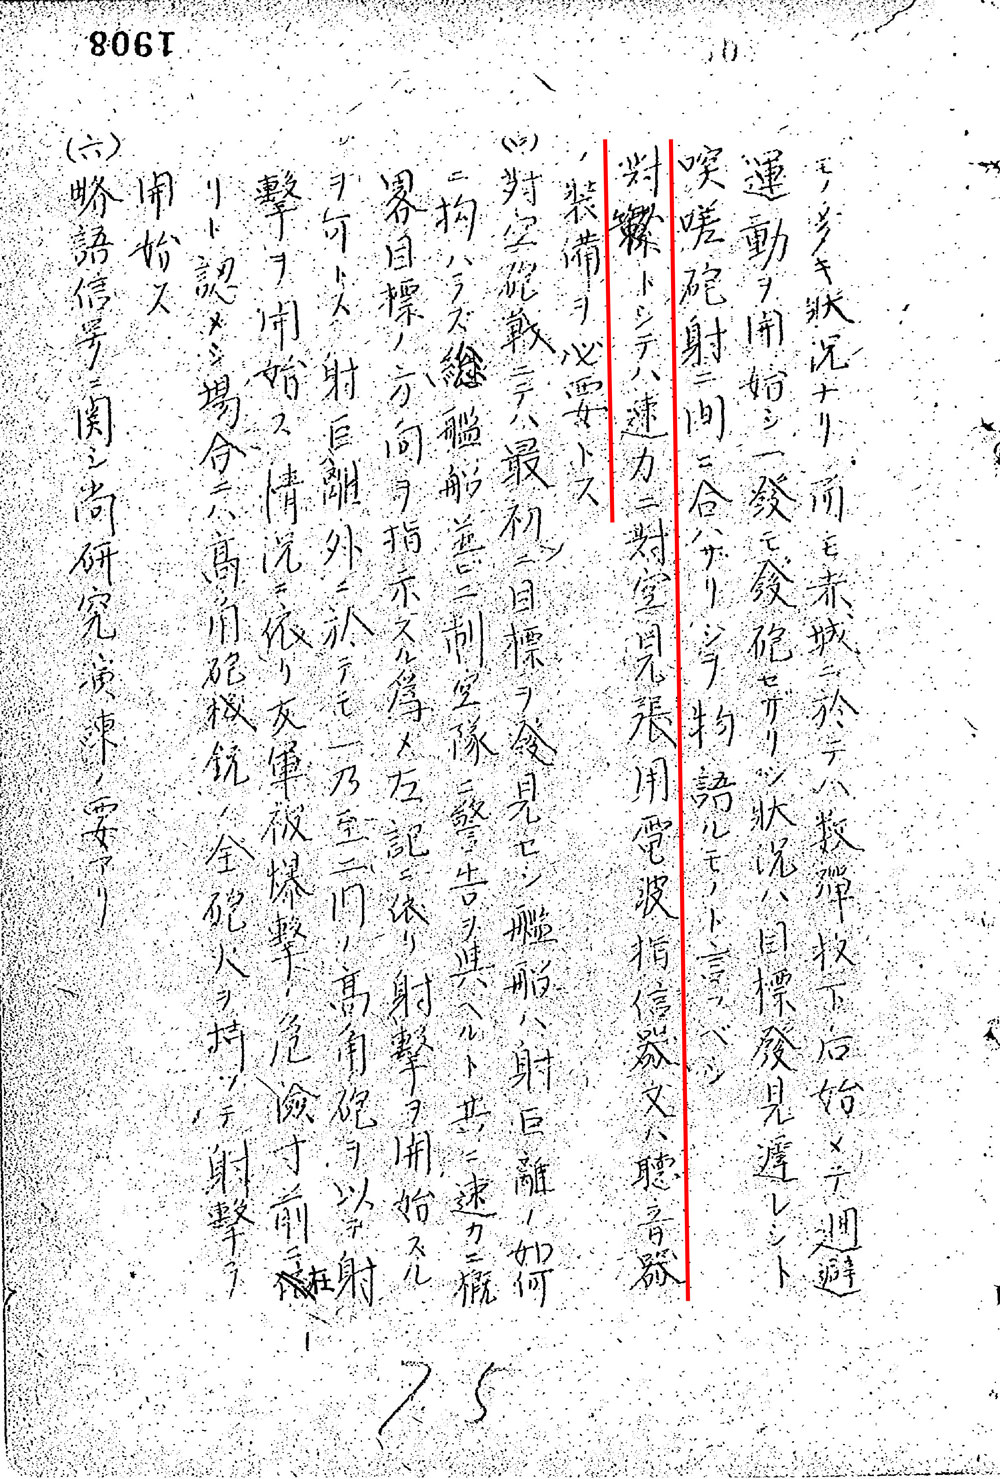 モノ多キ状況ナリ 而モ赤城ニ於テハ数彈投下后始メテ廻避
運動ヲ開始シ一發モ發砲セザリシ状況ハ目標發見遅レシト
咲嗟砲射ニ間ニ合ハザリシヲ物語ルモノト言フベシ
對策トシテハ速カニ對空見張用電波指信器又ハ聴音器
ノ装備ヲ必要トス
対空砲戦ニテハ最初ニ目標ヲ發見セシ艦船ハ射巨離ノ如何
ニ拘ハラズ艦船並ニ制空隊ニ警告ヲ與ヘルト共ニ速カニ概
畧目標ノ方向ヲ指示スル為メ左記ニ依リ射撃ヲ開始スル
ヲ可トス 射巨離外ニ於テモ一乃至二門ノ高角砲ヲ以テ射
撃ヲ開始ス 情況ニ依リ友軍被爆撃ノ危険寸前ニ在
リト認メシ場合ニハ高角砲機銃ノ全砲火ヲ持ツテ射撃ヲ
開始ス
(六)略語信号ニ関シ尚研究演練ノ要アリ
75
1908